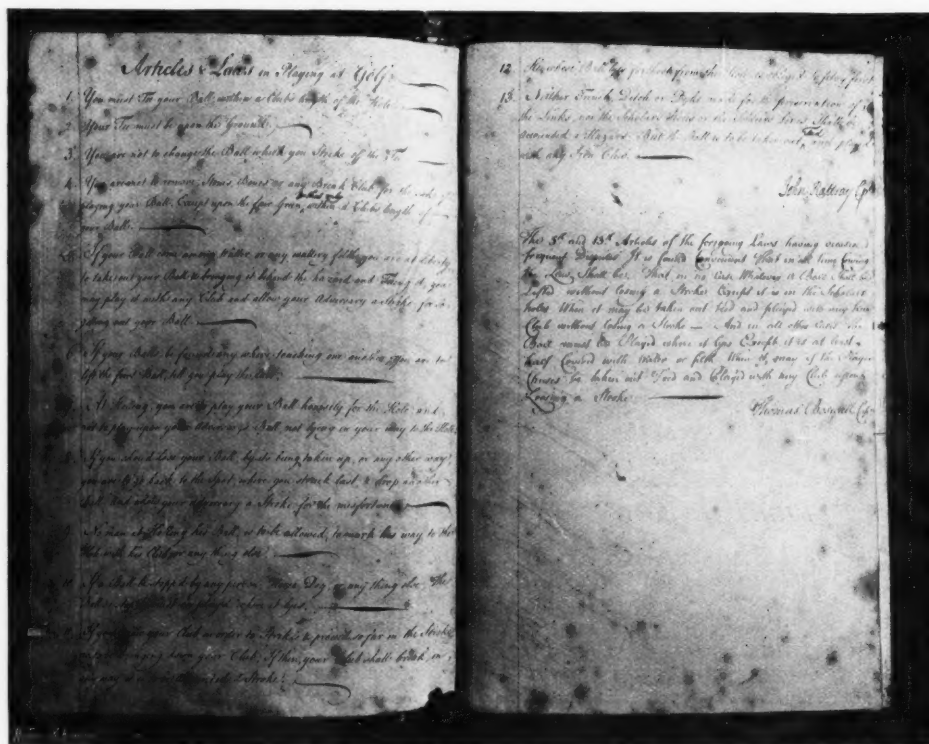 Articles & Laws in Playing at Golf.
1. You must Tee your Ball, within a Club's length of the Hole.
2. Your Tee must be upon the Ground.
3. You are not to change the Ball which you Stroke off the Tee
4. You are not to remove, Stones, Bones or any Break Club for the sake of
playing your Ball, Except upon the fair Green, & that only within a Club's length of
your Ball.
5. If your Ball come among Water, or any wattery filth, you are at liberty
to take out your Ball & bringing it behind the hazard and Teeing it, you
may play it with any Club and allow your Adversary a Stroke for so
getting out your Ball.
6. If your Balls be found any where touching one another, You are to
lift the first Ball, till you play the last.
7. At Holeing, you are to play your Ball honestly for the Hole, and
not to play upon your Adversary's Ball, not lying in your way to the Hole.
8. If you should lose your Ball, by its being taken up, or any other way
you are to go back to the Spot, where you struck last, & drop another
Ball, And allow your adversary a Stroke for the misfortune.
9. No man at Holeing his Ball, is to be allowed, to mark his way to the
Hole with his Club or any thing else.
10. If a Ball be stopp'd by any person, Horse, Dog or any thing else, The
Ball so stop'd must be played where it lyes.
11. If you draw your Club in order to Stroke & proceed so far in the Stroke
as to be bringing down your Club; If then, your Club shall break, in
any way, it is to be Accounted a Stroke.
12. He whose Ball lyes farthest from the Hole is obliged to play first
13. Neither Trench, Ditch or Dyke, made for the preservation of
the Links, nor the Scholars Holes or the Soldiers Lines, Shall be
accounted a Hazard; But the Ball is to be taken out, Teed and play'd
with any Iron Club.
John Rattray Cpt
The 5th and 13th Articles of the foregoing Laws having occasioned
frequent Disputes It is found Convenient That in all time Coming
the Law Shall be, That in no Case Whatever a Ball Shall be
Lifted without losing a Stroke Except it is in the Scholars
holes When it may be taken out teed and played with any Iron
Club without losing a Stroke — And in all other Cases The
Ball must be Played where it lyes Except it is at least
half Covered with Water or filth When it may if the Player
Chuses be taken out Teed and Played with any Club upon
Loosing a Stroke.
Thomas Boswall Cpt